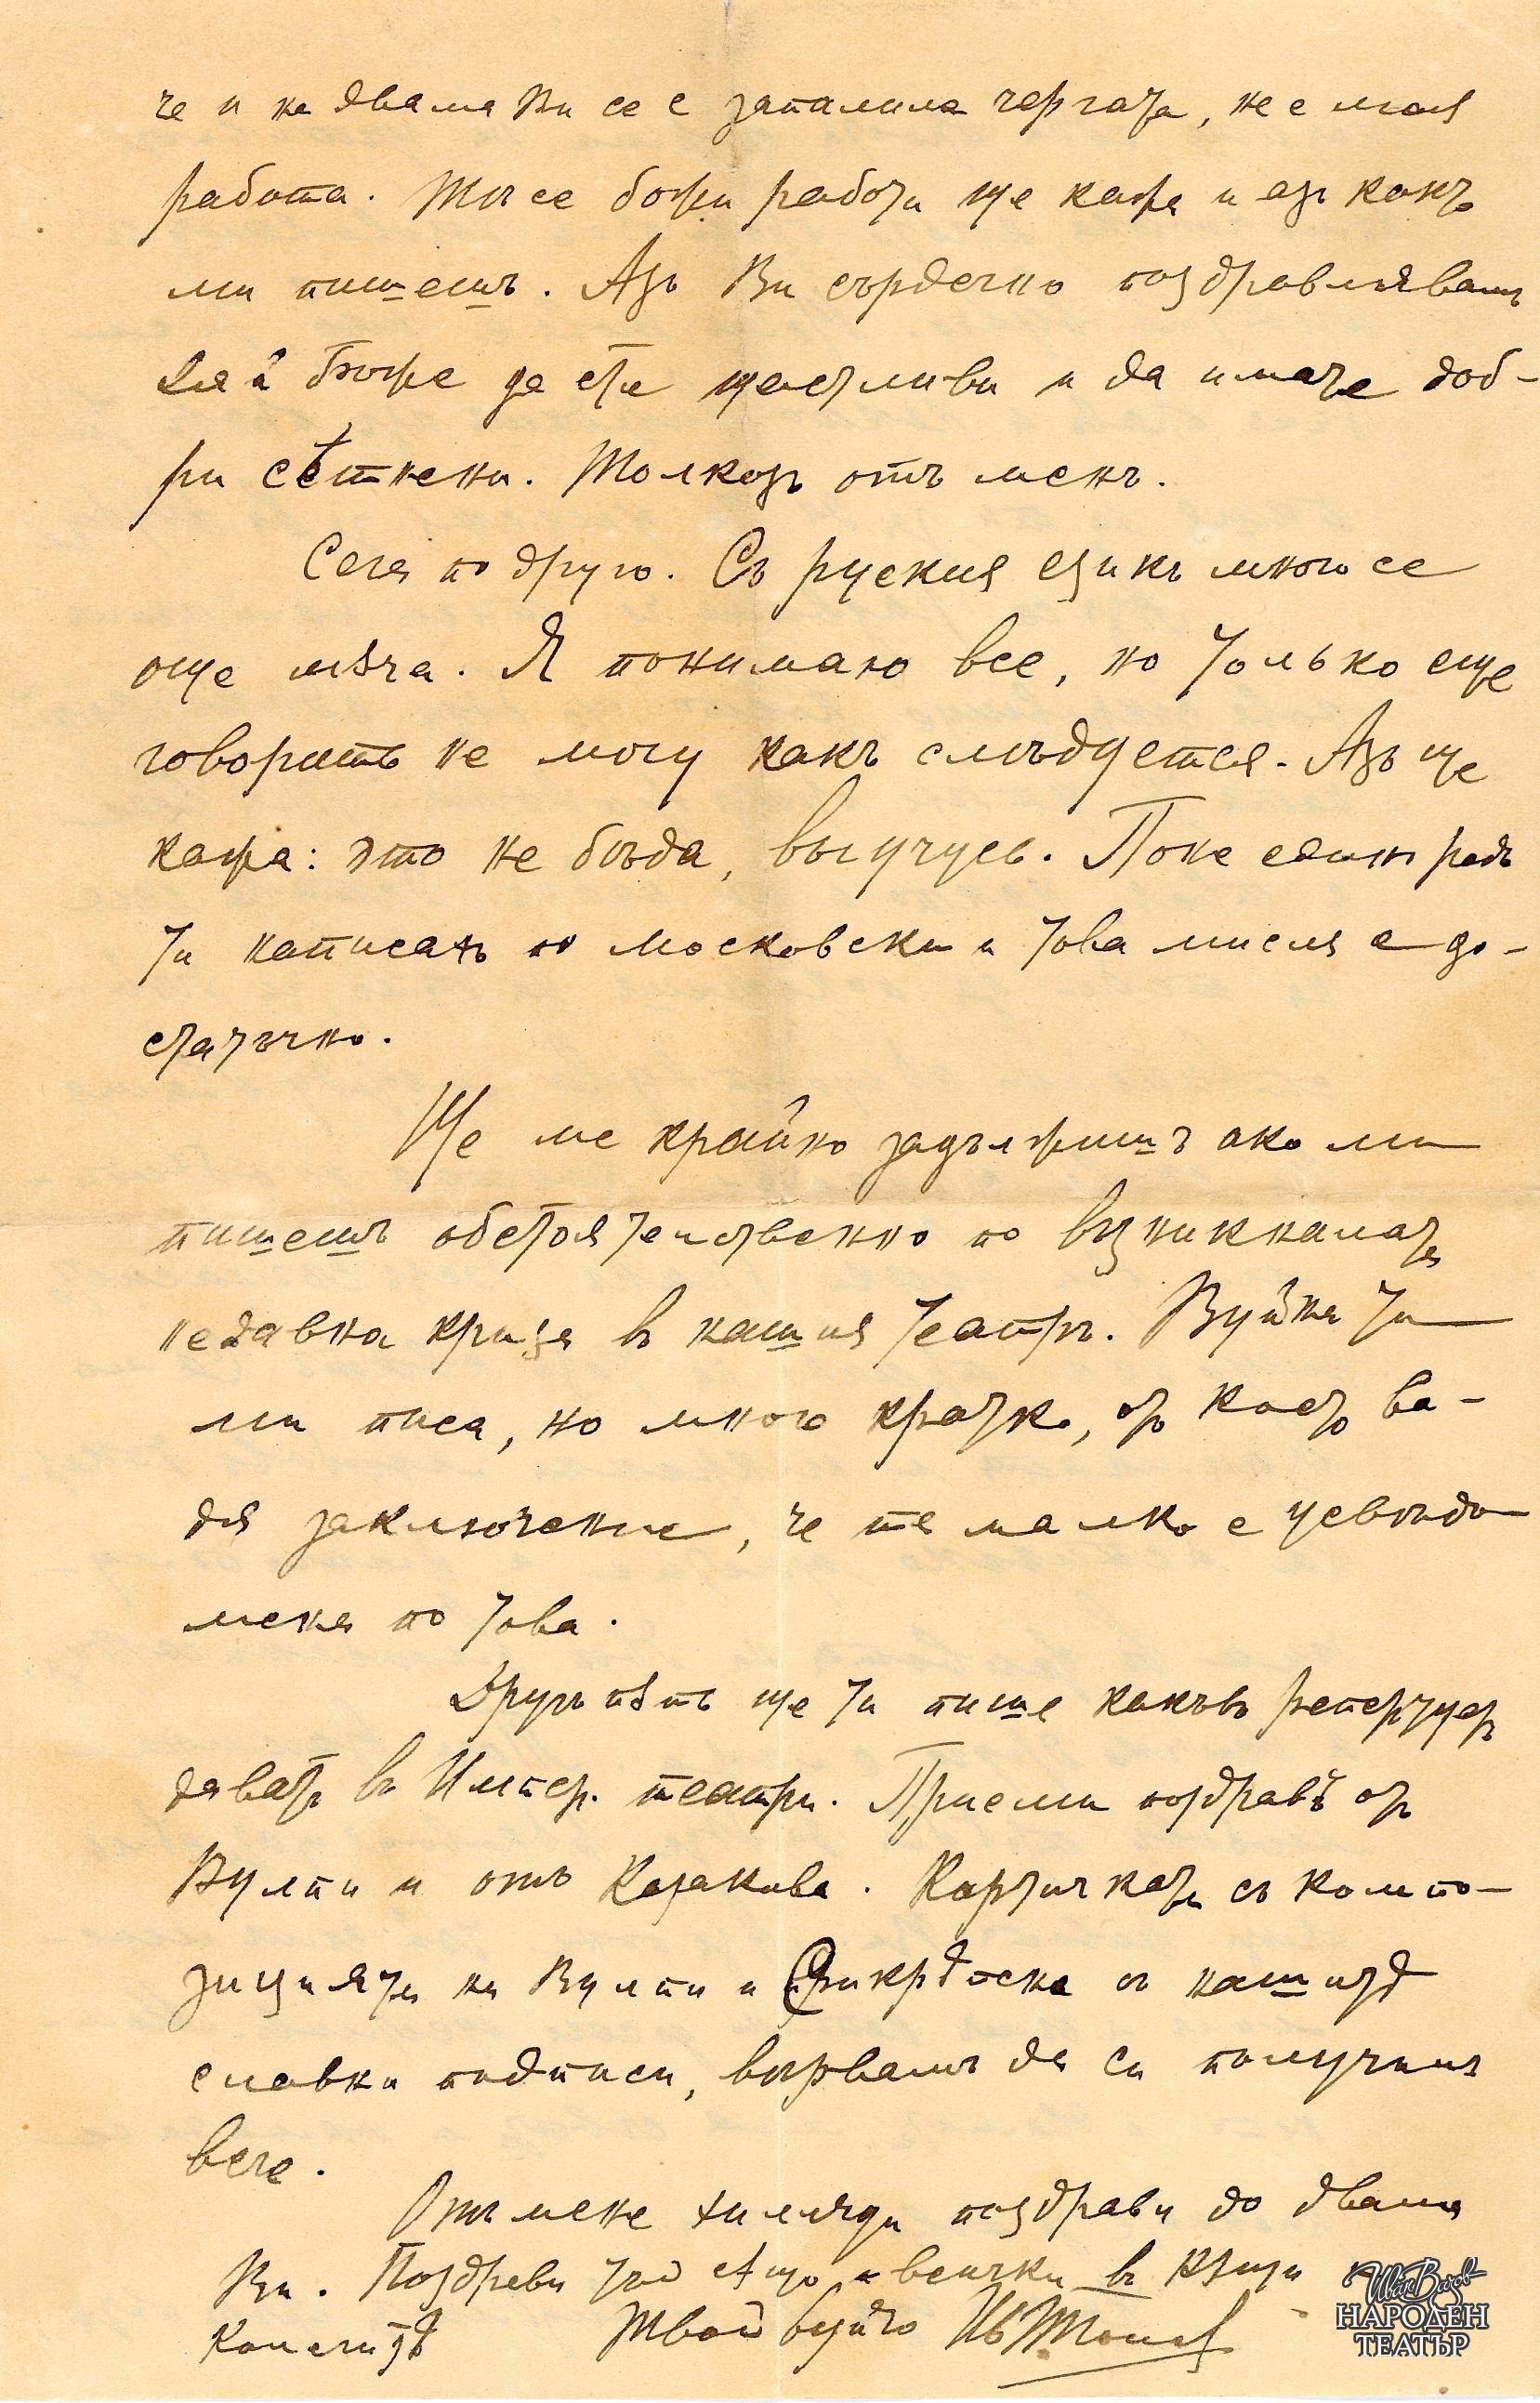 че и на двама Ви се е запалила чергата, не е моя
работа. Тъй се божи работи ще кажа и азъ какъ
ми пишешъ. Азъ Ви сърдечно поздравлявамъ
дай Боже да сте щастливи и да имате доб-
ри сѣтнени. Толкозъ отъ менъ.
Сега по друго. Съ руския езикъ много се
още мѫча. Я понимаю все, но только еще
говорить не могу какъ слѣдуется. Азъ ще
кажа: это не бѣда, выучусь. Поне единъ редъ
ти написахъ по московски и това мисля е до-
статъчно.
Ще ме крайно задължишъ ако ми
пишешъ обстоятелственно по възникналата
недавна криза въ нашия театръ. Вуйна ти
ми писа, но много кратко, отъ което ва-
дя заключение, че тя малко е усвѣдо-
мена по това.
Другъ пѫть ще ти пиша какъвъ репертуаръ
даватъ въ Импер. театри. Приеми поздравъ отъ
Вулпи и отъ Казакова. Картичката съ компо-
зицията на Вулпи и съ наший
славни подписи, вѣрвамъ да си получилъ
вече.
Отъ мене хиляди поздрави до двама
Ви. Поздрави тъй сѫщо и всички въ кѫщи
Твой вуйчо Ив Поповъ
Иван Вазов
НАРОДЕН
ТЕАТЪР